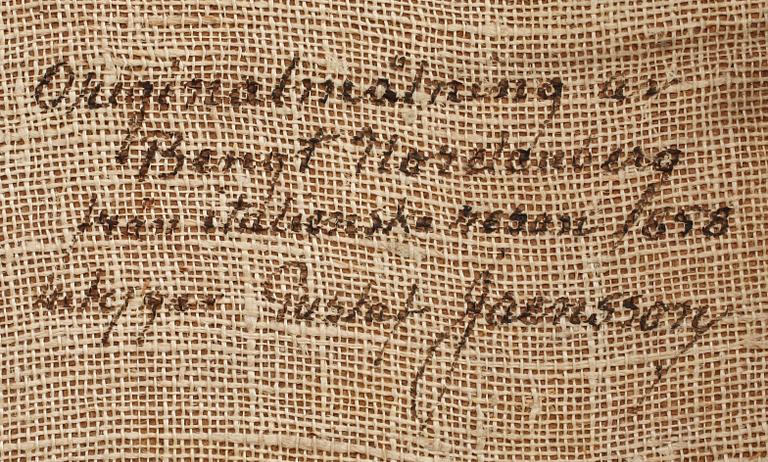 Originalmålning av
Bengt Nordenberg
från italienska resan 1858
intygar Gustaf Jaensson